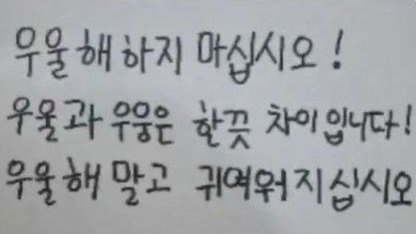 우울해하지 마십시오!
우울과 우웅은 한끗 차이입니다!
우울해 말고 귀여워지십시오